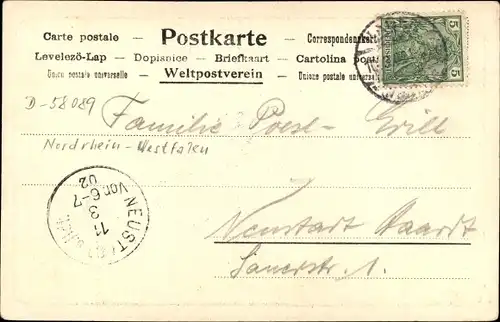 Carte postale — Postkarte — Correspondenzkarte
Levelező-Lap — Dopisnice — Briefkaart — Cartolina postale
Unión postale universelle — Weltpostverein — Unione postale universale
5 5
D-58089 Familie Poest - Grill
Nordrhein-Westfalen
NEUSTADT
11 3
Vor 6-7
02
Neustadt Haardt
Sauerstr. 1.